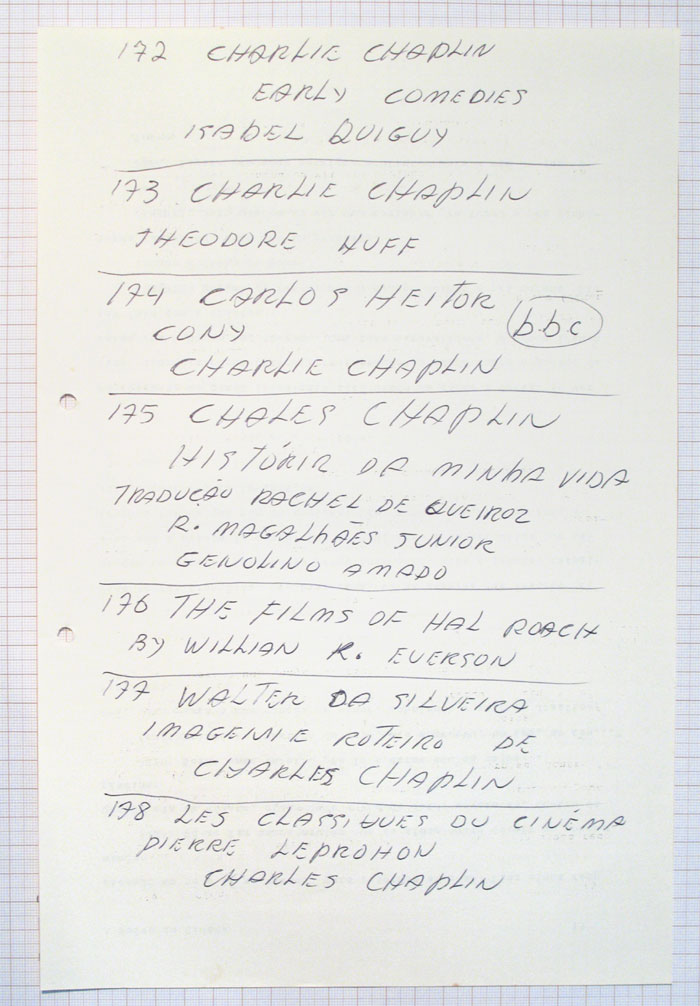 172 CHARLIE CHAPLIN
EARLY COMEDIES
ISABEL QUIGUY
173 CHARLIE CHAPLIN
THEODORE HUFF
174 CARLOS HEITOR
CONY
bbc
CHARLIE CHAPLIN
175 CHALES CHAPLIN
HISTÓRIR DA MINHA VIDA
TRADUÇÃO RACHEL DE QUEIROZ
R. MAGALHÃES JUNIOR
GENOLINO AMADO
176 THE FILMS OF HAL ROACH
BY WILLIAN K. EVERSON
177 WALTER DA SILVEIRA
IMAGEM E ROTEIRO DE
CHARLES CHAPLIN
178 LES CLASSIQUES DU CINÉMA
PIERRE LEPROHON
CHARLES CHAPLIN